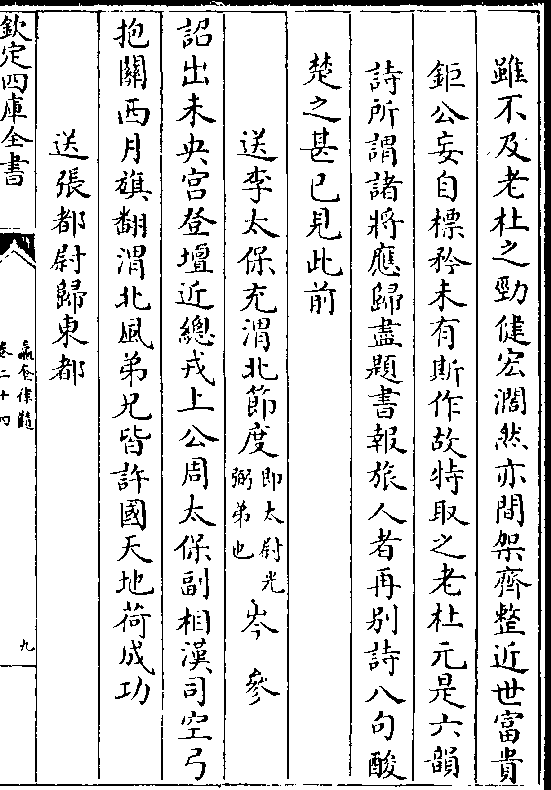 雖不及老杜之勁健宏濶然亦間架齊整近世富貴
鉅公妄自標矜未有斯作故特取之老杜元是六韻
詩所謂諸將應歸盡題書報旅人者再别詩八句酸
楚之甚已見此前
送李太保充渭北節度即太尉光弼弟也 岑參
詔出未央宫登壇近總戎上公周太保副相漢司空弓
抱關西月旗翻渭北風弟兄皆許國天地荷成功
送張都尉歸東都
欽定四庫全書
瀛奎律髓
卷二十四
九